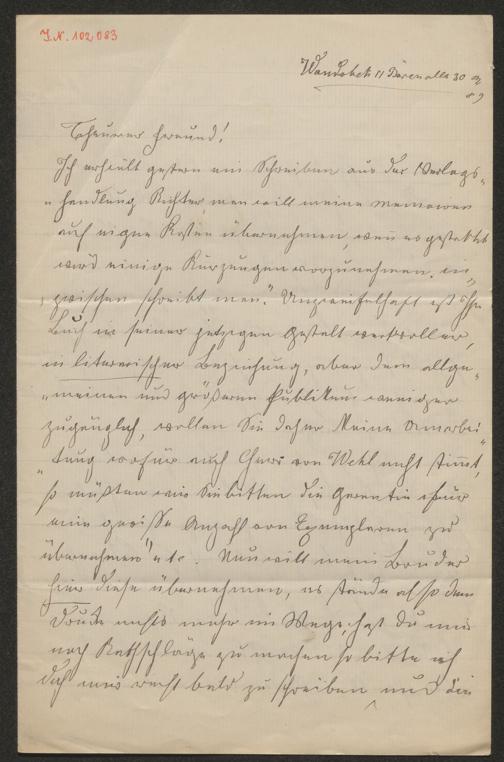 J.N. 102083
Wandsbek 11 Bärenallee 30
89
Theurer Freund!
Ich erhielt gestern ein Schreiben aus der Verlags-
handlung Richter man will meine Memoiren
auf eigne Kosten übernehmen, wenn es gestattet
wird einige Kürzungen vorzunehmen, in-
zwischen schreibt man: "Unzweifelhaft ist Ihr
Buch in seiner jetzigen Gestalt wertvoller,
in literarischer Beziehung, aber dem allge-
meinen und größeren Publikum weniger
zugänglich, wollen Sie daher keine Umarbei-
tung wofür auch Herr von Wehl nicht stimmt,
so müßten wir Sie bitten die Garantie für
eine gewisse Anzahl von Exemplaren zu
übernehmen" etc. Nun will mein Bruder
hier diese übernehmen, es stände also dem
Druck nichts mehr im Wege, hast Du mir
noch Rathschläge zu machen so bitte ich
Dich mir recht bald zu schreiben und die